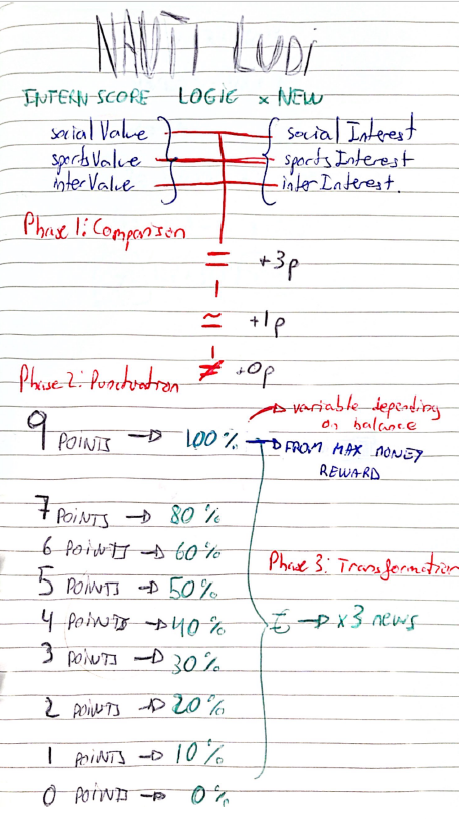 NAUTI LUDI
INTERN-SCORE LOGIC x NEW
social Value social Interest
sports Value sports Interest
inter Value inter Interest.
Phase 1: Comparison
= +3p
≃ +1p
≠ +0p
Phase 2: Punctuation
variable depending
on balance
9 POINTS → 100% → FROM MAX MONEY
REWARD
7 POINTS → 80%
6 POINTS → 60%
Phase 3: Transformation
5 POINTS → 50%
4 POINTS → 40% → x3 news
3 POINTS → 30%
2 POINTS → 20%
1 POINTS → 10%
0 POINTS → 0%